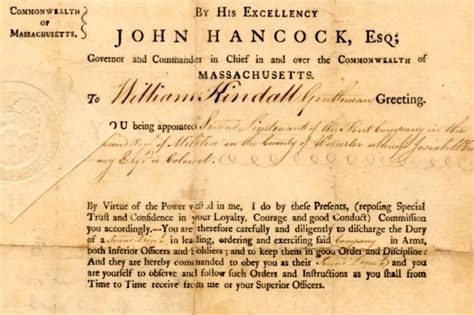 COMMONWEALTH
OF
MASSACHUSETTS.
BY HIS EXCELLENCY
JOHN HANCOCK, ESQ;
Governor and Commander in Chief in and over the COMMONWEALTH of
MASSACHUSETTS.
To William Kindall Gentleman Greeting.
YOU being appointed Second Lieutenant of the first Company in the
Regt. of Militia in the County of Worcester whereof Josiah
Esqr. is Colonel
By Virtue of the Power vested in me, I do by these Presents, (reposing Special
Trust and Confidence in your Loyalty, Courage and good Conduct) Commission
you accordingly.—You are therefore carefully and diligently to discharge the Duty
of a in leading, ordering and exercising said Company in Arms,
both Inferior Officers and Soldiers; and to keep them in good Order and Discipline:
And they are hereby commanded to obey you as their and you
are yourself to observe and follow such Orders and Instructions as you shall from
Time to Time receive from me or your Superior Officers.